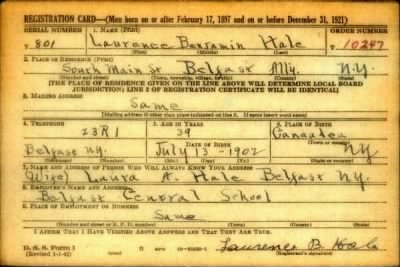 REGISTRATION CARD—(Men born on or after February 17, 1897 and on or before December 31, 1921)
SERIAL NUMBER 1. NAME (Print) ORDER NUMBER
T 801 Laurance Benjamin Hale T 10247
(First) (Middle) (Last)
2. PLACE OF RESIDENCE (Print)
South Main St Belfast Alleg. N.Y.
(Number and street) (Town, township, village, or city) (County) (State)
[THE PLACE OF RESIDENCE GIVEN ON THE LINE ABOVE WILL DETERMINE LOCAL BOARD
JURISDICTION; LINE 2 OF REGISTRATION CERTIFICATE WILL BE IDENTICAL]
3. MAILING ADDRESS
Same
[Mailing address if other than place indicated on line 2. If same insert word same]
4. TELEPHONE 5. AGE IN YEARS 6. PLACE OF BIRTH
23R1 39 Canadea
DATE OF BIRTH (Town or county)
Belfast N.Y. July 13 - 1902 N.Y.
(Mo.) (Day) (Yr.) (State or country)
7. NAME AND ADDRESS OF PERSON WHO WILL ALWAYS KNOW YOUR ADDRESS
(Wife) Laura A. Hale Belfast N.Y.
8. EMPLOYER'S NAME AND ADDRESS
Belfast Central School
9. PLACE OF EMPLOYMENT OR BUSINESS
Same
(Number and street or R. F. D. number) (Town) (County) (State)
I AFFIRM THAT I HAVE VERIFIED ABOVE ANSWERS AND THAT THEY ARE TRUE.
D. S. S. Form 1
(Revised 1-1-42) GPO Laurence B. Hale
(Registrant's signature)